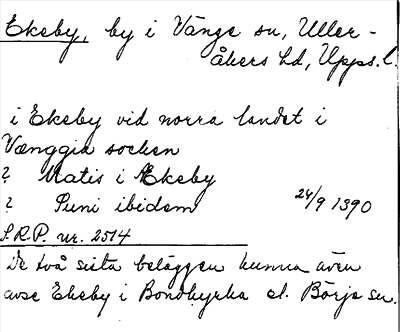 Ekeby, by i Vänge sn, Uller-
åkers hd, Upps. l.
i Ekeby vid norra landet i
Vænggia socken
? Matis i Ekeby
? Puni ibidem 24/9 1390
S.R.P. nr. 2514
De två sista beläggen kunna även
avse Ekeby i Bondkyrka el. Börje sn.